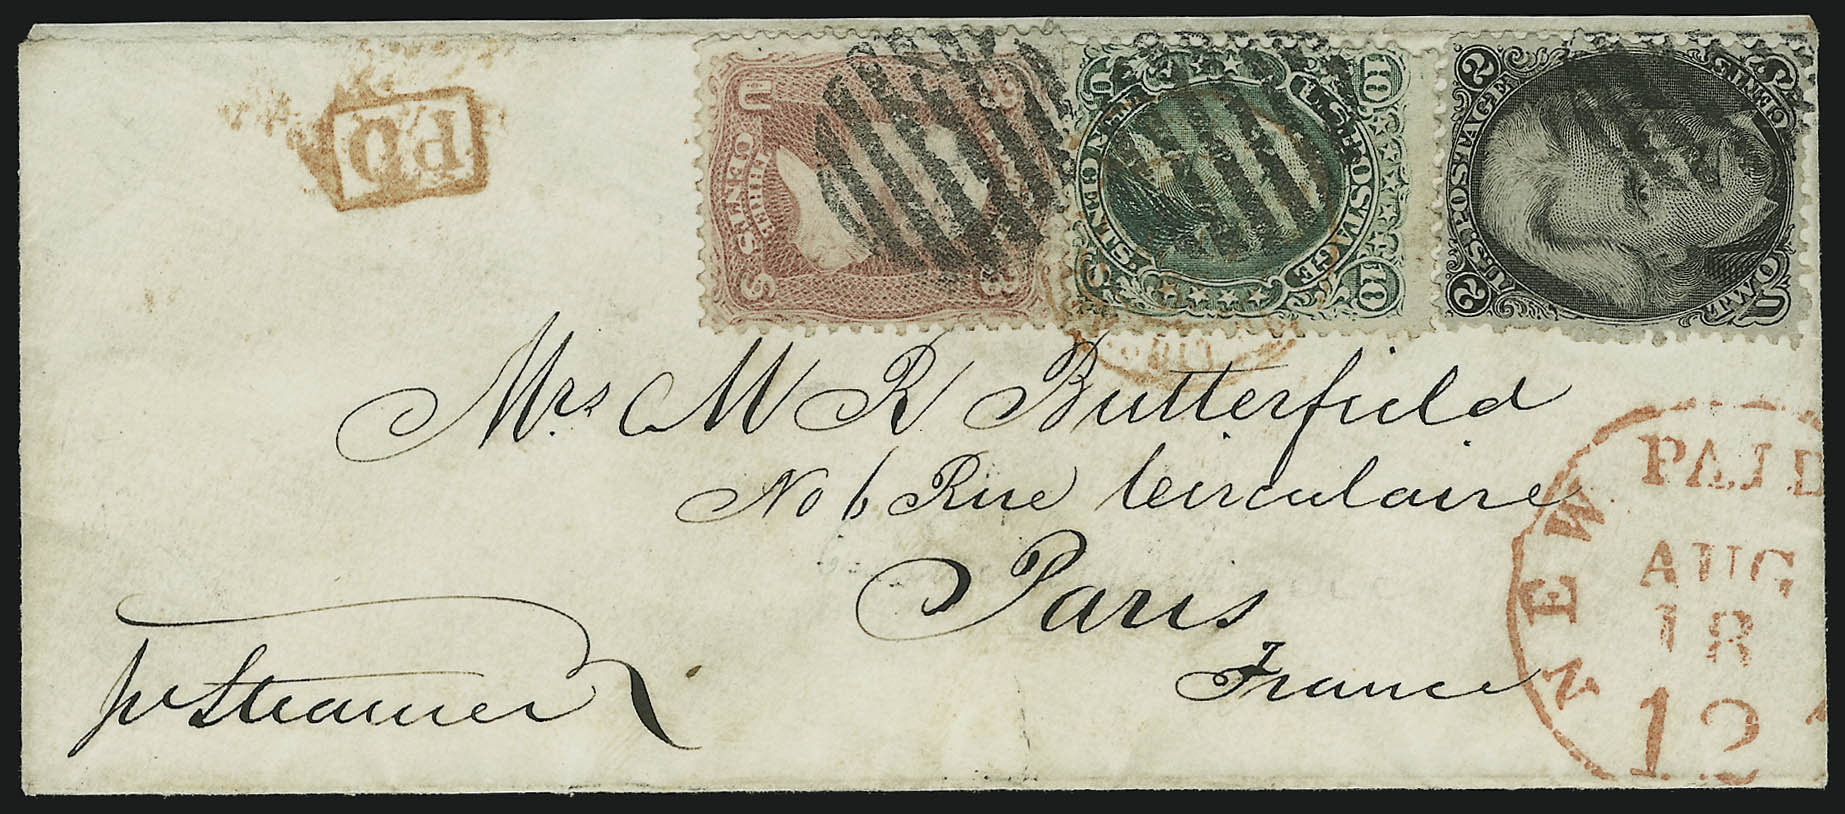 PD
U S
3 3
THREE
CENTS
U.S. POSTAGE
10 10
TEN CENTS
U S
U.S. POSTAGE
2 2
TWO
CENTS
U
Mrs M R Butterfield
No 6 Rue Circulaire
Paris
France
pr Steamer
NEW
PAID
AUG
18
12